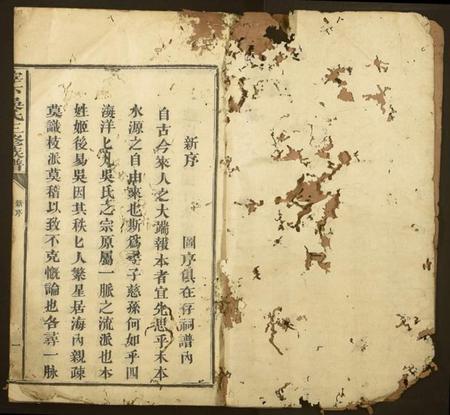 新序
圖序俱在仔祠譜內
自古今來人之大端報本者宜先思乎木本
水源之自由來也斯為尋子慈孫何如乎四
海洋匕凡吳氏之宗原屬一脈之流派也本
姓姬後易吳因其秩匕人繁星居海內親疎
莫識枝派莫稽以致不克慨論也各尋一脈
吳氏三修族譜
新序
一